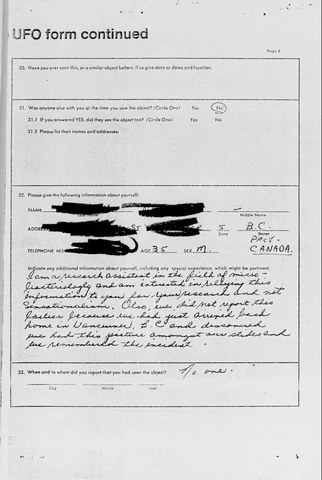 UFO form continued
Page 6
30. Have you ever seen this, or a similar object before. If so give date or dates and location.
31. Was anyone else with you at the time you saw the object? (Circle One) Yes No
31.1 If you answered YES, did they see the object too? (Circle One) Yes No
31.2 Please list their names and addresses:
32. Please give the following information about yourself:
NAME
Middle Name
ADDRESS B.C.
Zone
PROV.
TELEPHONE AGE 35 SEX M. CANADA.
Indicate any additional information about yourself, including any special experience, which might be pertinent.
I am a research assistant in the field of micro-
bacteriology and am interested in relaying this
information to you for your research and not
sensationalism. Also, we did not report this
earlier because we had just arrived back
home in Vancouver, B.C and discovered
we had this picture amongst our slides and
we remembered the incident.
33. When and to whom did you report that you had seen the object? No one.
Day Month Year